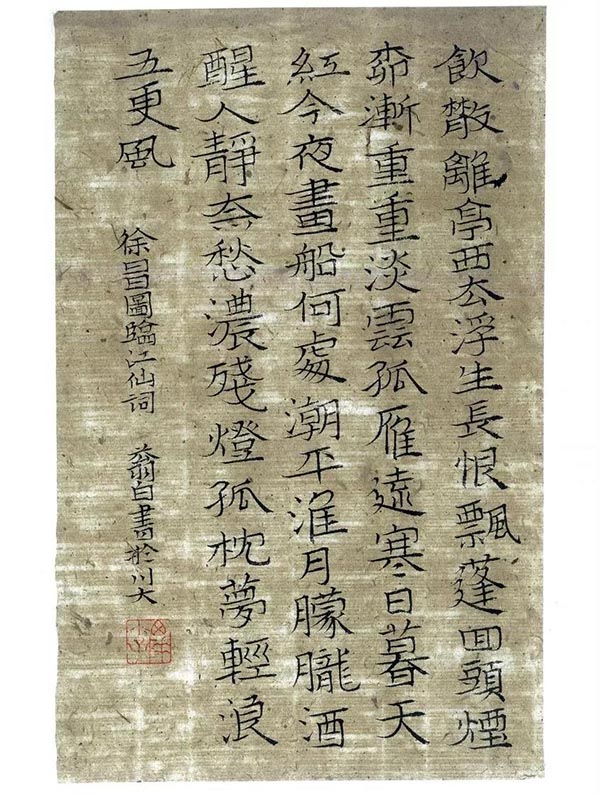 飲散離亭西去浮生長恨飄蓬回頭煙
柳漸重重淡雲孤雁遠寒日暮天
紅今夜畫船何處潮平淮月朦朧酒
醒人靜奈愁濃殘燈孤枕夢輕浪
五更風
徐昌圖臨江仙詞 白書於川大